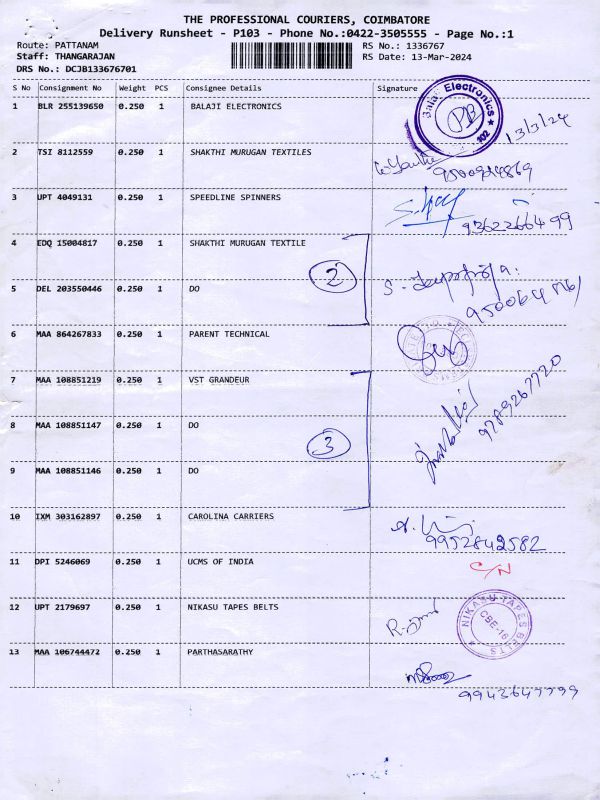 THE PROFESSIONAL COURIERS, COIMBATORE
Delivery Runsheet - P103 - Phone No.:0422-3505555 - Page No.:1
Route: PATTANAM RS No.: 1336767
Staff: THANGARAJAN RS Date: 13-Mar-2024
DRS No.: DCJB133676701
S No Consignment No Weight PCS Consignee Details Signature
1 BLR 255139650 0.250 1 BALAJI ELECTRONICS
Balaji Electronics
102
13/3/24
2 TSI 8112559 0.250 1 SHAKTHI MURUGAN TEXTILES
9500924869
3 UPT 4049131 0.250 1 SPEEDLINE SPINNERS
9362266499
4 EDQ 15004817 0.250 1 SHAKTHI MURUGAN TEXTILE
2
5 DEL 203550446 0.250 1 DO
6 MAA 864267833 0.250 1 PARENT TECHNICAL
7 MAA 108851219 0.250 1 VST GRANDEUR
9789267720
8 MAA 108851147 0.250 1 DO
3
9 MAA 108851146 0.250 1 DO
10 IXM 303162897 0.250 1 CAROLINA CARRIERS
9952842582
11 DPI 5246069 0.250 1 UCMS OF INDIA
C/N
12 UPT 2179697 0.250 1 NIKASU TAPES BELTS
NIKASU TAPES BELTS
CBE-16
13 MAA 106744472 0.250 1 PARTHASARATHY
9943647799